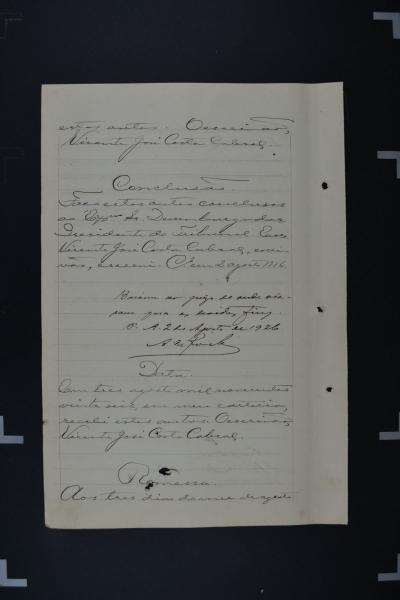 estes autos. O escrivão,
Vicente José Costa Cabral.
Conclusão.
Faço estes autos conclusos
ao Exmo. Sr. Desembargador
Presidente do Tribunal. Eu,
Vicente José Costa Cabral, escri-
vão, escrevi. Cls. em 2 agosto 1926.
Baixem ao juizo de onde vie-
ram para os devidos fins.
2 de Agosto de 1926
Data.
Em tres agosto mil novecentos
vinte seis, em meu cartorio,
recebi estes autos. O escrivão,
Vicente José Costa Cabral.
Remessa.
Aos tres dias do mez de agosto